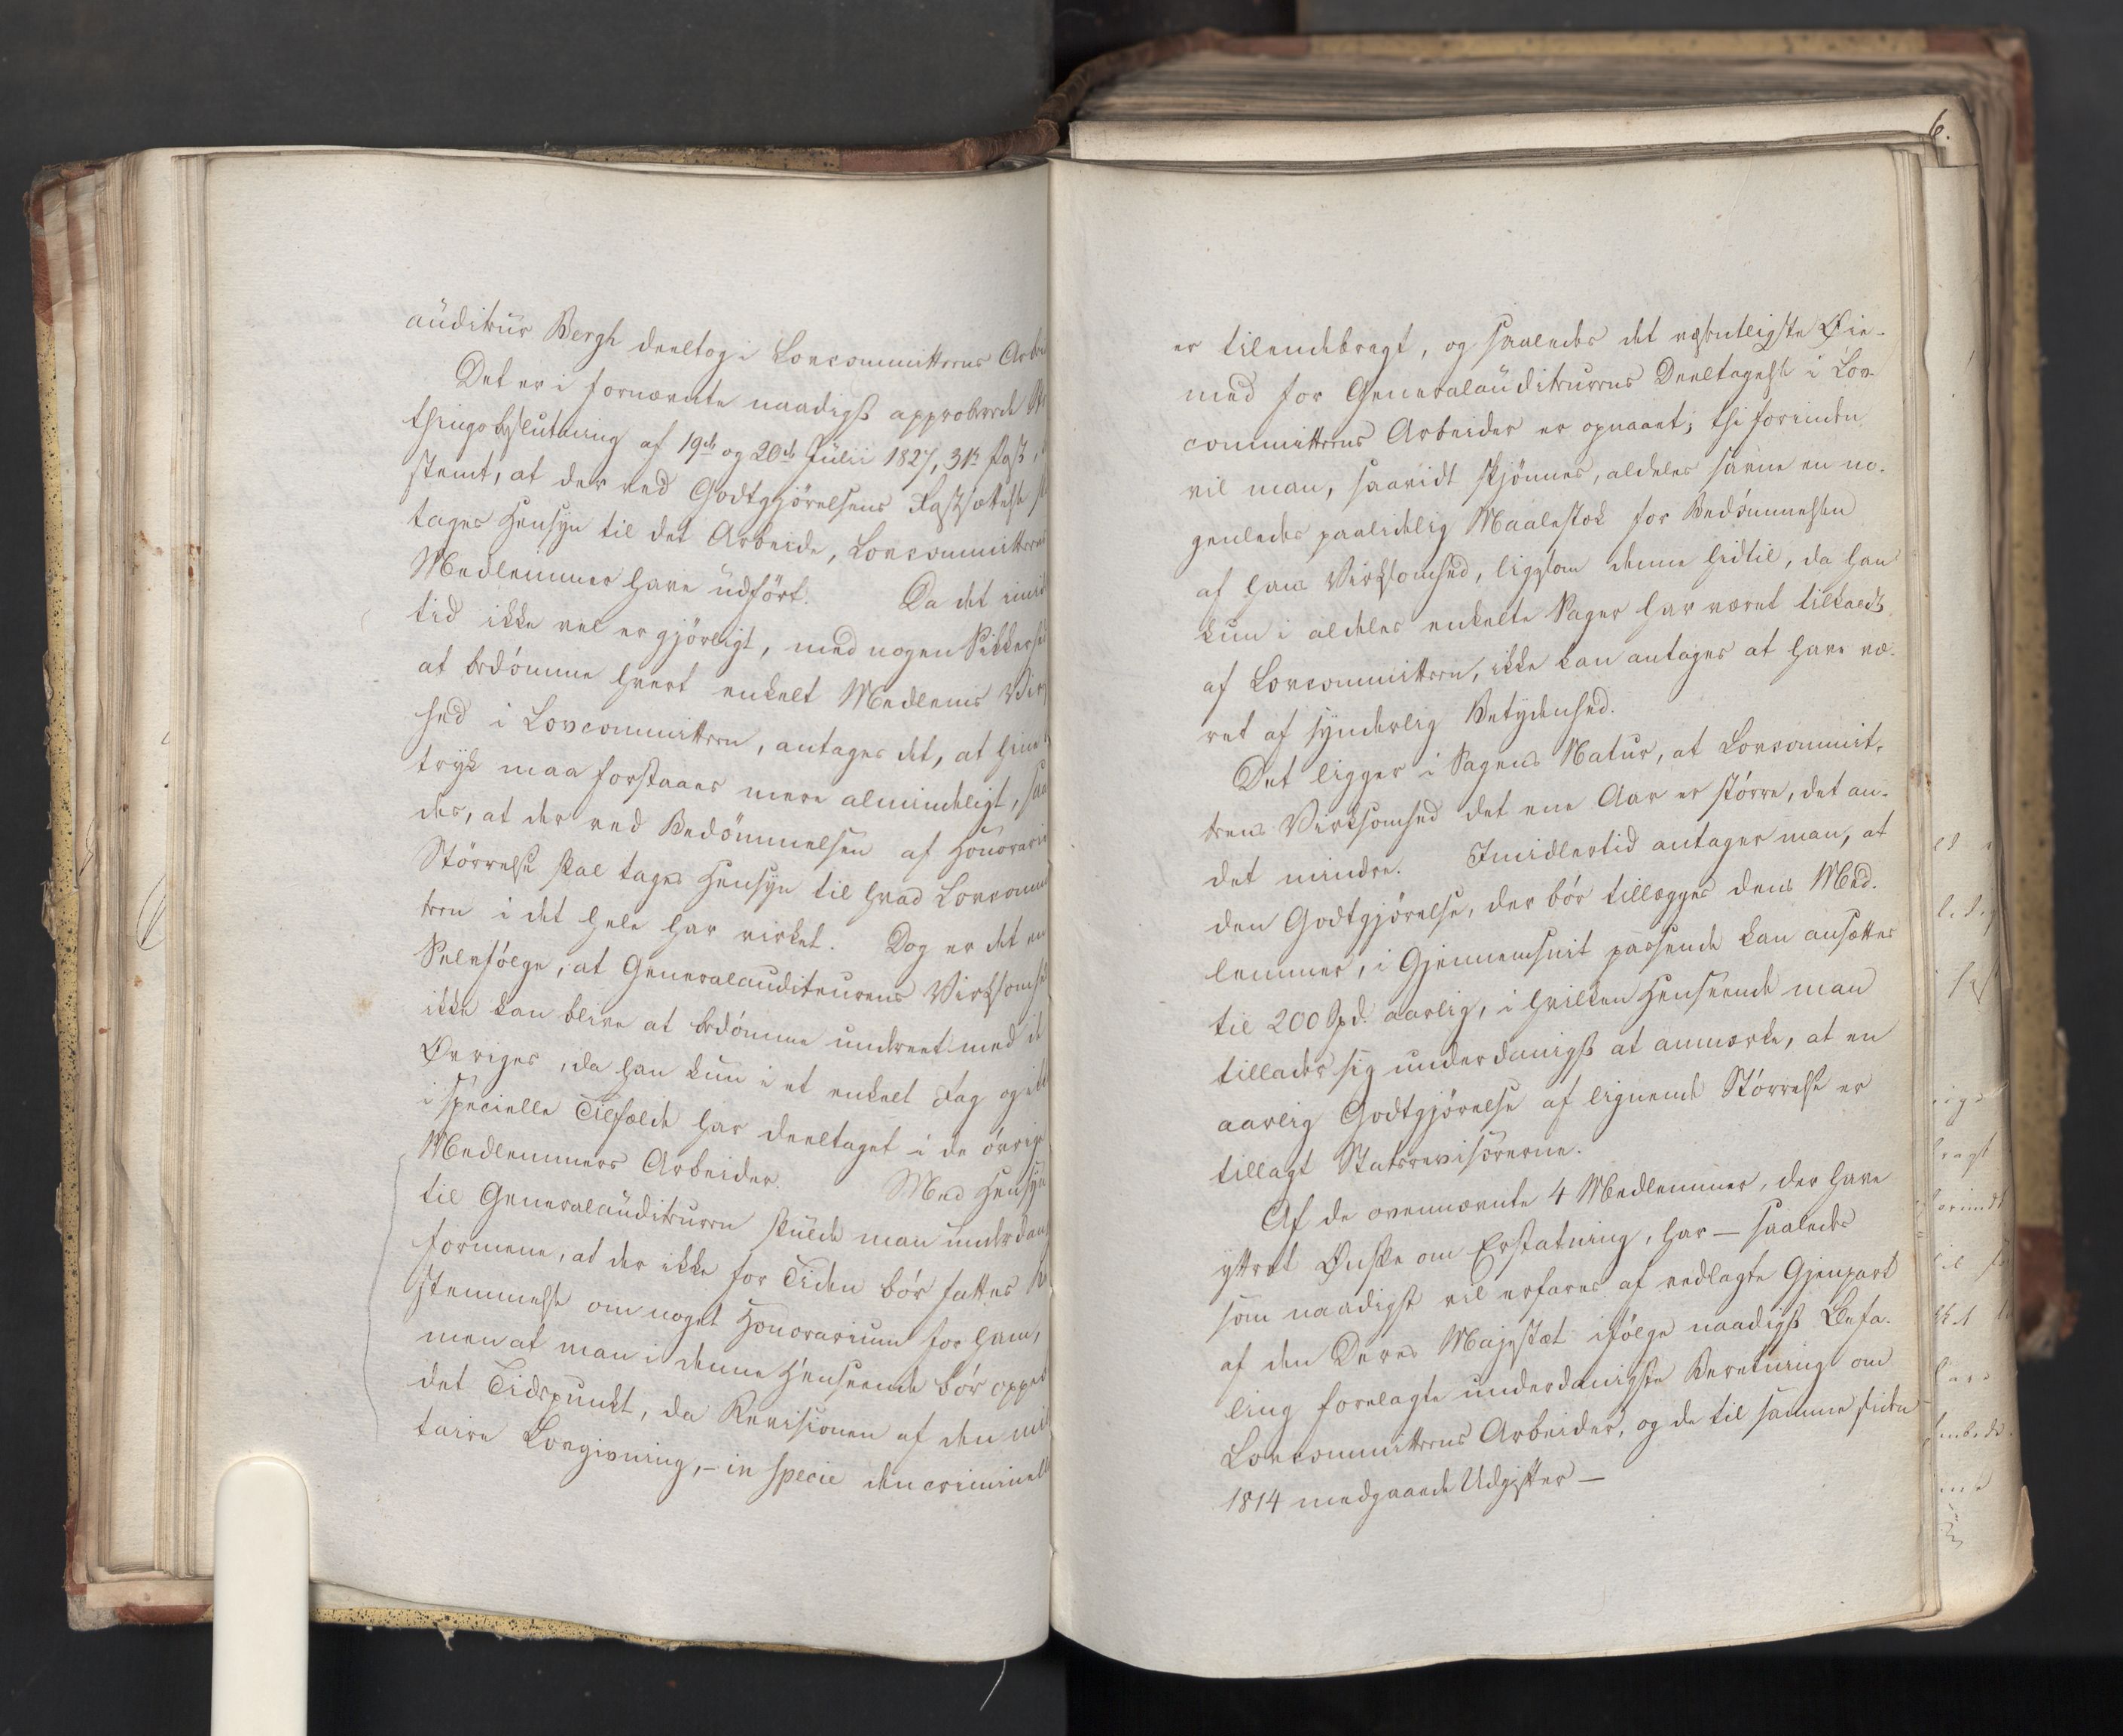 auditeur Bergh deeltog i Lovcommitteens Arbei
Det er i fornævnte naadigst approberede St
thingsbeslutning af 19de og 20de Julii 1827, 3die Post,
stemt, at der ved Godtgjörelsens Fastsættelse
tages Hensyn til det Arbeide, Lovcommitteens
Medlemmer have udfört. Da det imid
tid ikke vel er gjörligt, med nogen Sikkerhe
at bedömme hvert enkelt Medlems Virk
hed i Lovcommitteen, antages det, at hiint
tryk maa forstaaes mere almindeligt, saa
des, at der ved Bedömmelsen af Honorari
Störrelse skal tages Hensyn til hvad Lovcomm
teen i det hele har virket. Dog er det en
Selvfölge, at Generalauditeurens Virksomhe
ikke kan blive at bedömme under eet med de
Övriges, da han kun i et enkelt Fag og i
specielle Tilfælde har deeltaget i de övrige
Medlemmers Arbeider. Med Hensyn
til Generalauditeuren skulde man underdan
formene, at der ikke for Tiden bör fattes Be
stemmelse om noget Honorarium for ham,
men at man i denne Henseende bör oppe
det Tidspunkt, da Revisionen af den mi
taire Lovgivning, – in specie den criminell
6.
er tilendebragt, og saaledes det væsentligste Öie-
med for Generalauditeurens Deeltagelse i Lov-
committeens Arbeider er opnaaet; thi forinden
vil man, saavidt skjönnes, aldeles savne en no-
genledes paalidelig Maalestok for Bedömmelsen
af hans Virksomhed, ligesom denne hidtil, da han
kun i aldeles enkelte Sager har været tilkaldt
af Lovcommitteen, ikke kan antages at have væ-
ret af synderlig Betydenhed.
Det ligger i Sagens Natur, at Lovcommit-
teens Virksomhed det ene Aar er större, det an-
det mindre. Imidlertid antager man, at
den Godtgjörelse, der bör tillægges dens Med-
lemmer, i Gjennemsnit passende kan ansættes
til 200 Spd. aarlig, i hvilken Henseende man
tillader sig underdanigst at anmærke, at en
aarlig Godtgjörelse af lignende Störrelse er
tillagt Statsrevisorerne.
Af de ovennævnte 4 Medlemmer, der have
yttret Önske om Erstatning, har – saaledes
som naadigst vil erfares af vedlagte Gjenpart
af den Deres Majestæt ifölge naadigst Befa-
ling forelagte underdanigste Beretning om
Lovcommitteens Arbeider, og de til samme siden
1814 medgaaede Udgifter –